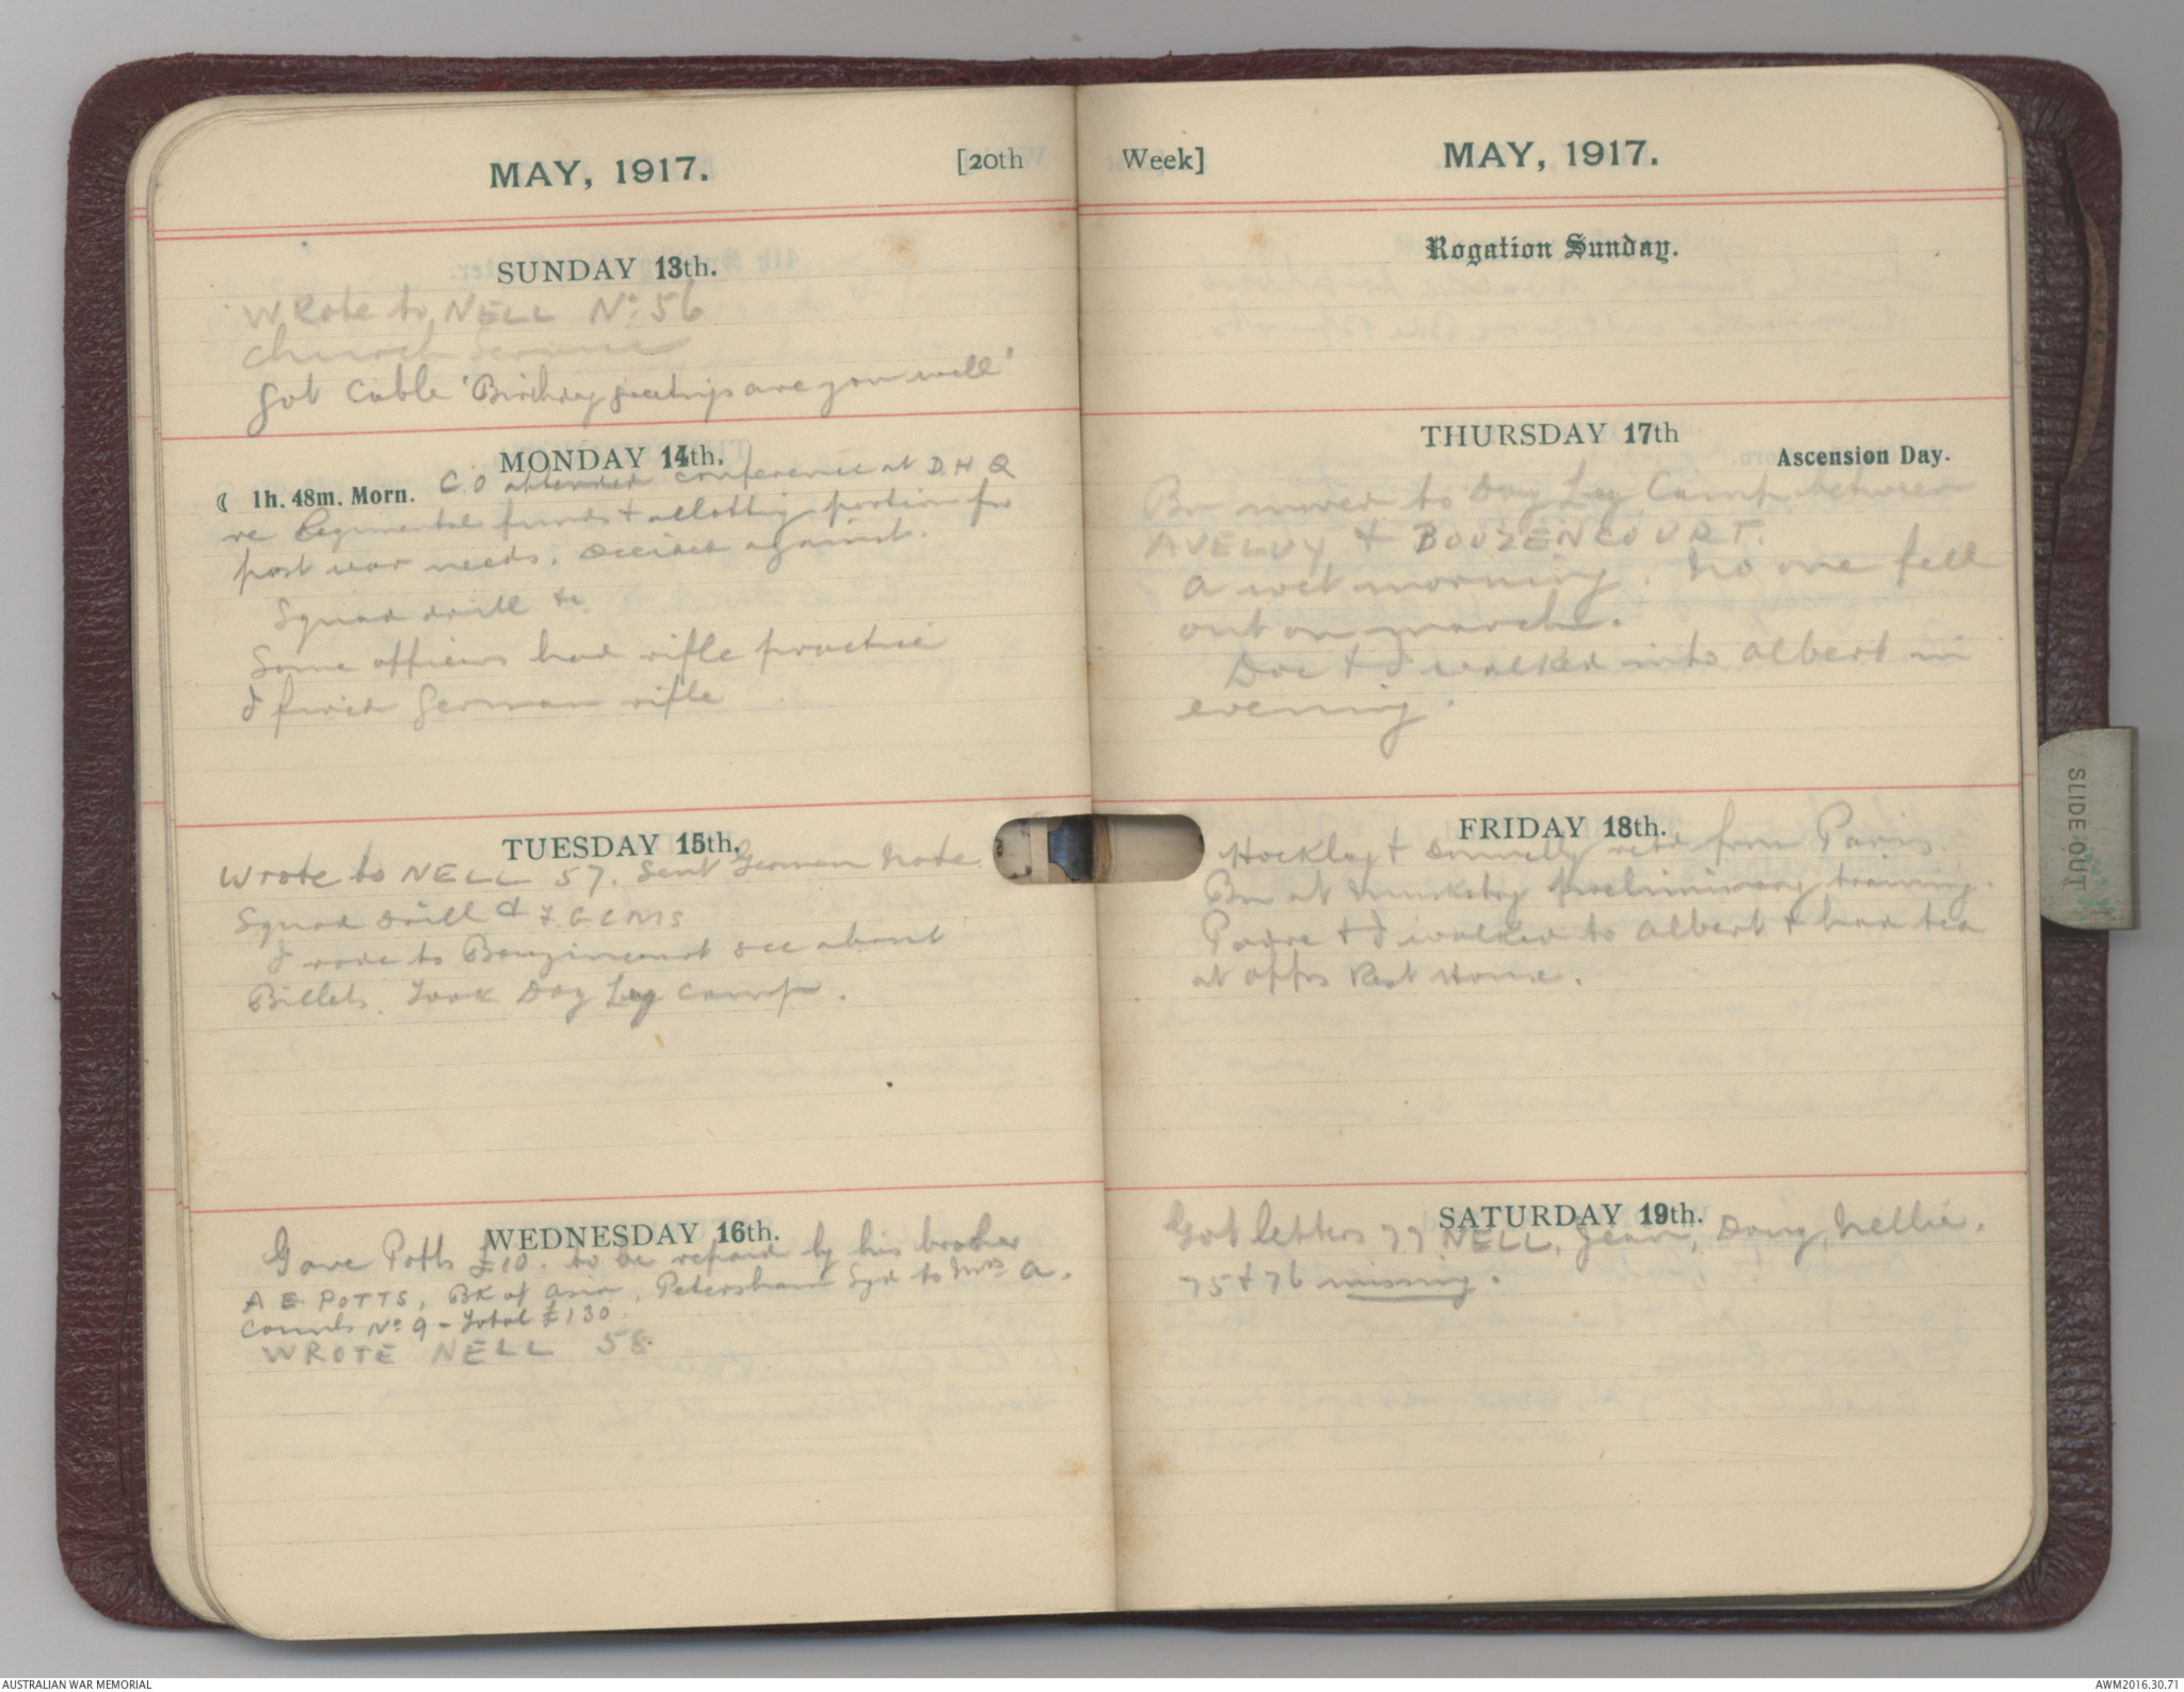 MAY, 1917. [20th
SUNDAY 13th.
Wrote to NELL No. 56
Church Service
Got Cable 'Birthday greetings are you well'
MONDAY 14th.
☾ 1h. 48m. Morn. C.O attended conference at D.H.Q
re Regimental funds & allotting portion for
post war needs. Decided against.
Squad drill &c.
Some officers had rifle practice
I fired German rifle
TUESDAY 15th.
Wrote to NELL 57. Sent German note.
Squad Drill & F.G.C.M's
I rode to Bouzincourt see about
Billets. Took Dog Leg camp.
WEDNESDAY 16th.
Gave Potts £10. to be repaid by his brother
A E POTTS, BK of Asia, Petersham Syd to Mrs A.
Counts No 9 - Total £130.
WROTE NELL 58.
Week] MAY, 1917.
Rogation Sunday.
THURSDAY 17th
Ascension Day.
Bn moved to Dog Leg Camp between
AVELUY & BOUZENCOURT.
A wet morning. No one fell
out on march.
Doc & I walked into Albert in
evening.
FRIDAY 18th.
Hockley & Donnelly retd from Paris.
Bn at musketry preliminary training.
Padre & I walked to Albert & had tea
at offrs Rest Home.
SATURDAY 19th.
Got letters 77 NELL, Jean, Doug, Nellie.
75 & 76 missing.
SLIDE OUT
AUSTRALIAN WAR MEMORIAL
AWM2016.30.71